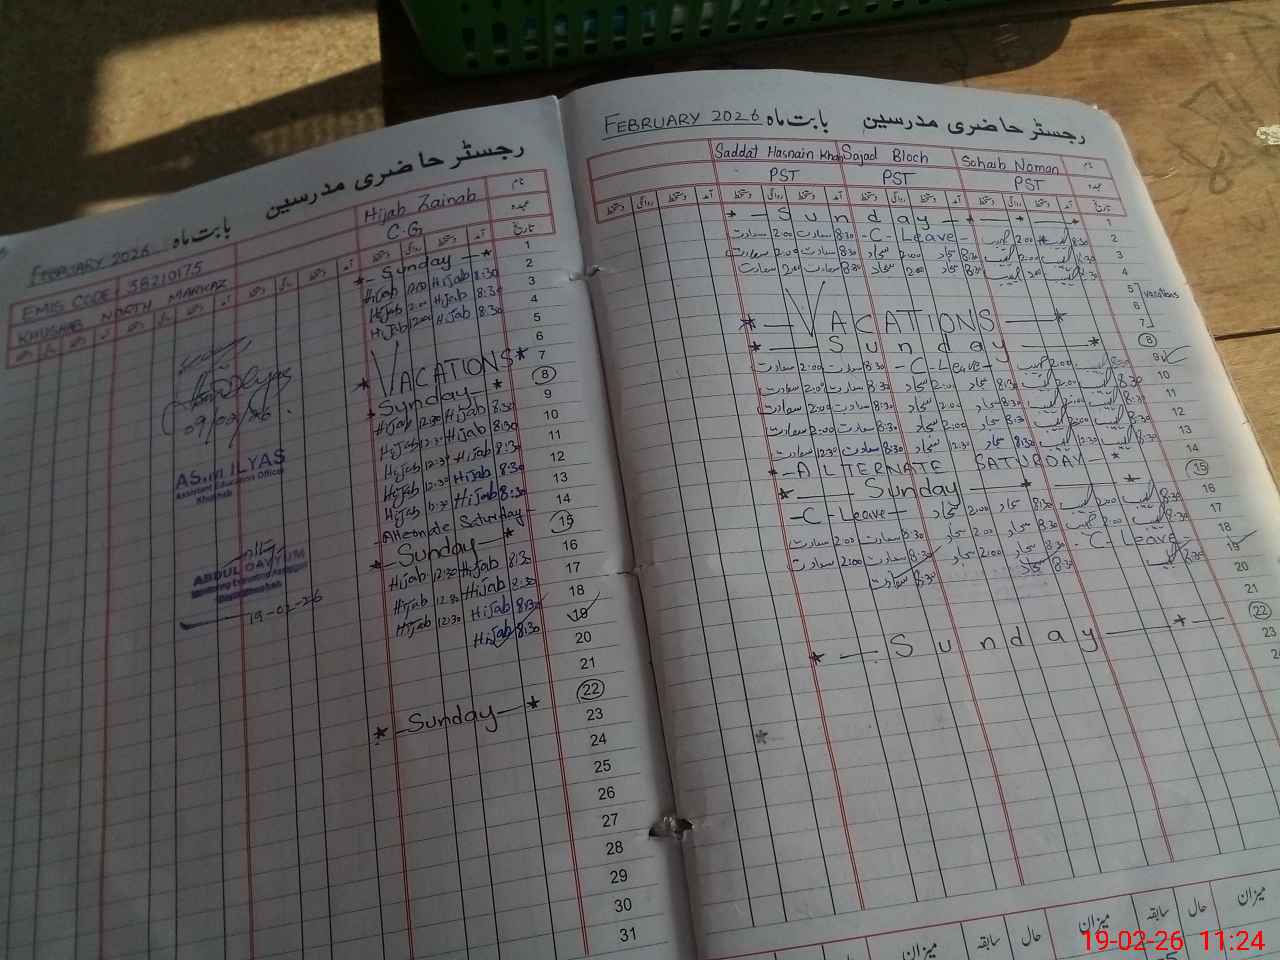 رجسٹر حاضری مدرسین
بابت ماہ FEBRUARY 2026
EMIS CODE: 38210175
KHUSHAB NORTH MARKAZ
Hijab Zainab نام
C.G عہدہ
تاریخ
1 * - Sunday - *
2 Hijab Hijab 8:30
3 Hijab 2:00 Hijab 8:30
4 Hijab 12:00 Hijab 8:30
5
6
7 * VACATIONS *
8 * Sunday - *
9 Hijab 12:30 Hijab 8:30
10 Hijab 12:30 Hijab 8:30
11 Hijab 12:30 Hijab 8:30
12 Hijab 12:30 Hijab 8:30
13 Hijab Hijab 8:30
14 - Alternate Saturday -
15 * - Sunday - *
16 Hijab 12:30 Hijab 8:30
17 Hijab 12:30 Hijab
18 Hijab 12:30 Hijab 8:30
19 Hijab 8:30
20
21
22 * - Sunday - *
23
24
25
26
27
28
29
30
31
09/02/26
ILYAS
Assistant Education Officer
Khushab
ABDUL QAYYUM
19-02-26
رجسٹر حاضری مدرسین
بابت ماہ FEBRUARY 2026
Saddat Hasnain Khan Sajad Bloch Sohaib Noman نام
PST PST PST عہدہ
دستخط روانگی دستخط آمد دستخط روانگی دستخط آمد دستخط روانگی دستخط آمد تاریخ
1 * - Sunday - * - * - *
2 سعادت 2:00 سعادت 8:30 - C - Leave - صہیب 2:00 صہیب 8:30
3 سعادت 2:00 سعادت 8:30 سجاد 2:00 سجاد 8:30 صہیب 2:00 صہیب 8:30
4 سعادت 2:00 سعادت 8:30 سجاد 2:00 سجاد 8:30 صہیب 2:00 صہیب 8:30
5
6 Vacations
7 * - VACATIONS - *
8 * - Sunday - *
9 سعادت 2:00 سعادت 8:30 - C - Leave - صہیب 2:00 صہیب 8:30
10 سعادت 2:00 سعادت 8:30 سجاد 2:00 سجاد 8:30 صہیب 2:00 صہیب 8:30
11 سعادت 2:00 سعادت 8:30 سجاد 2:00 سجاد 8:30 صہیب 2:00 صہیب 8:30
12 سعادت 2:00 سعادت 8:30 سجاد 2:00 سجاد 8:30 صہیب 2:00 صہیب 8:30
13 سعادت 12:30 سعادت 8:30 سجاد 12:30 سجاد 8:30 صہیب 12:30 صہیب 8:30
14 * - ALTERNATE SATURDAY - *
15 * - Sunday - * - *
16 - C - Leave - سجاد 2:00 سجاد 8:30 صہیب 2:00 صہیب 8:30
17 سعادت 2:00 سعادت 8:30 سجاد 2:00 سجاد 8:30 صہیب 2:00 صہیب 8:30
18 سعادت 2:00 سعادت 8:30 سجاد 2:00 سجاد 8:30 - C - Leave -
19 سعادت 8:30 سجاد 8:30 صہیب 8:30
20
21
22 * - Sunday - * -
23
میزان سابقہ حال میزان سابقہ حال میزان
19-02-26 11:24